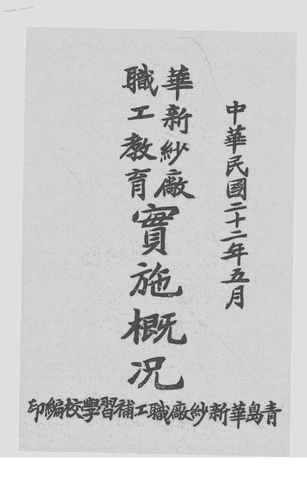 中華民國二十二年五月
華新紗廠
職工教育
實施概況
青島華新紗廠職工補習學校編印